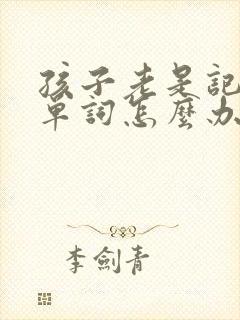 孩子老是記
單詞怎麼办
李劍青